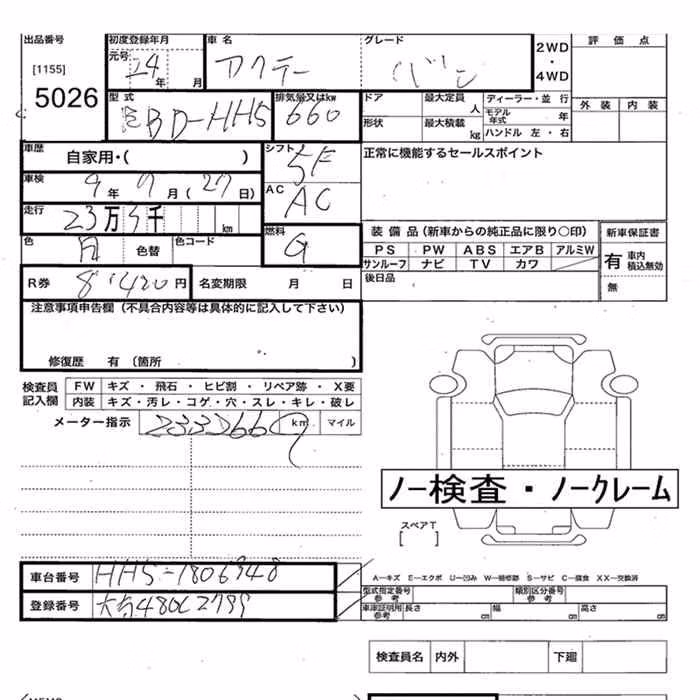 出品番号 初度登録年月 車名 グレード 2WD・4WD 評価点
[1155] 元号 24年 月 アクティー バン 外装 内装
5026 型式 EBD-HH5 排気量又はkw 660 ドア 最大定員 人 ディーラー・並行
モデル年式 年
形状 最大積載 kg ハンドル 左・右
車歴 自家用・( ) シフト 5F 正常に機能するセールスポイント
車検 9年9月(27日) AC AC
走行 23万3千 km 装備品(新車からの純正品に限り〇印) 新車保証書
色 白 色替 色コード 燃料 G PS PW ABS エアB アルミW 有 車内積込無効
サンルーフ ナビ TV カワ
R券 8,420円 名変期限 月 日 後日品 無
注意事項申告欄(不具合内容等は具体的に記入して下さい)
修復歴 有(箇所 )
検査員記入欄 FW キズ・飛石・ヒビ割・リペア跡・X要
内装 キズ・汚レ・コゲ・穴・スレ・キレ・破レ
メーター指示 km マイル
ノー検査・ノークレーム
スペアT
[ ]
車台番号 HH5-1806948 A-キズ E-エクボ U-凹み W-補修跡 S-サビ C-腐食 XX-交換済
型式指定番号 参考 類別区分番号 参考
登録番号 車庫証明用 参考 長さ cm 幅 cm 高さ cm
検査員名 内外 下廻